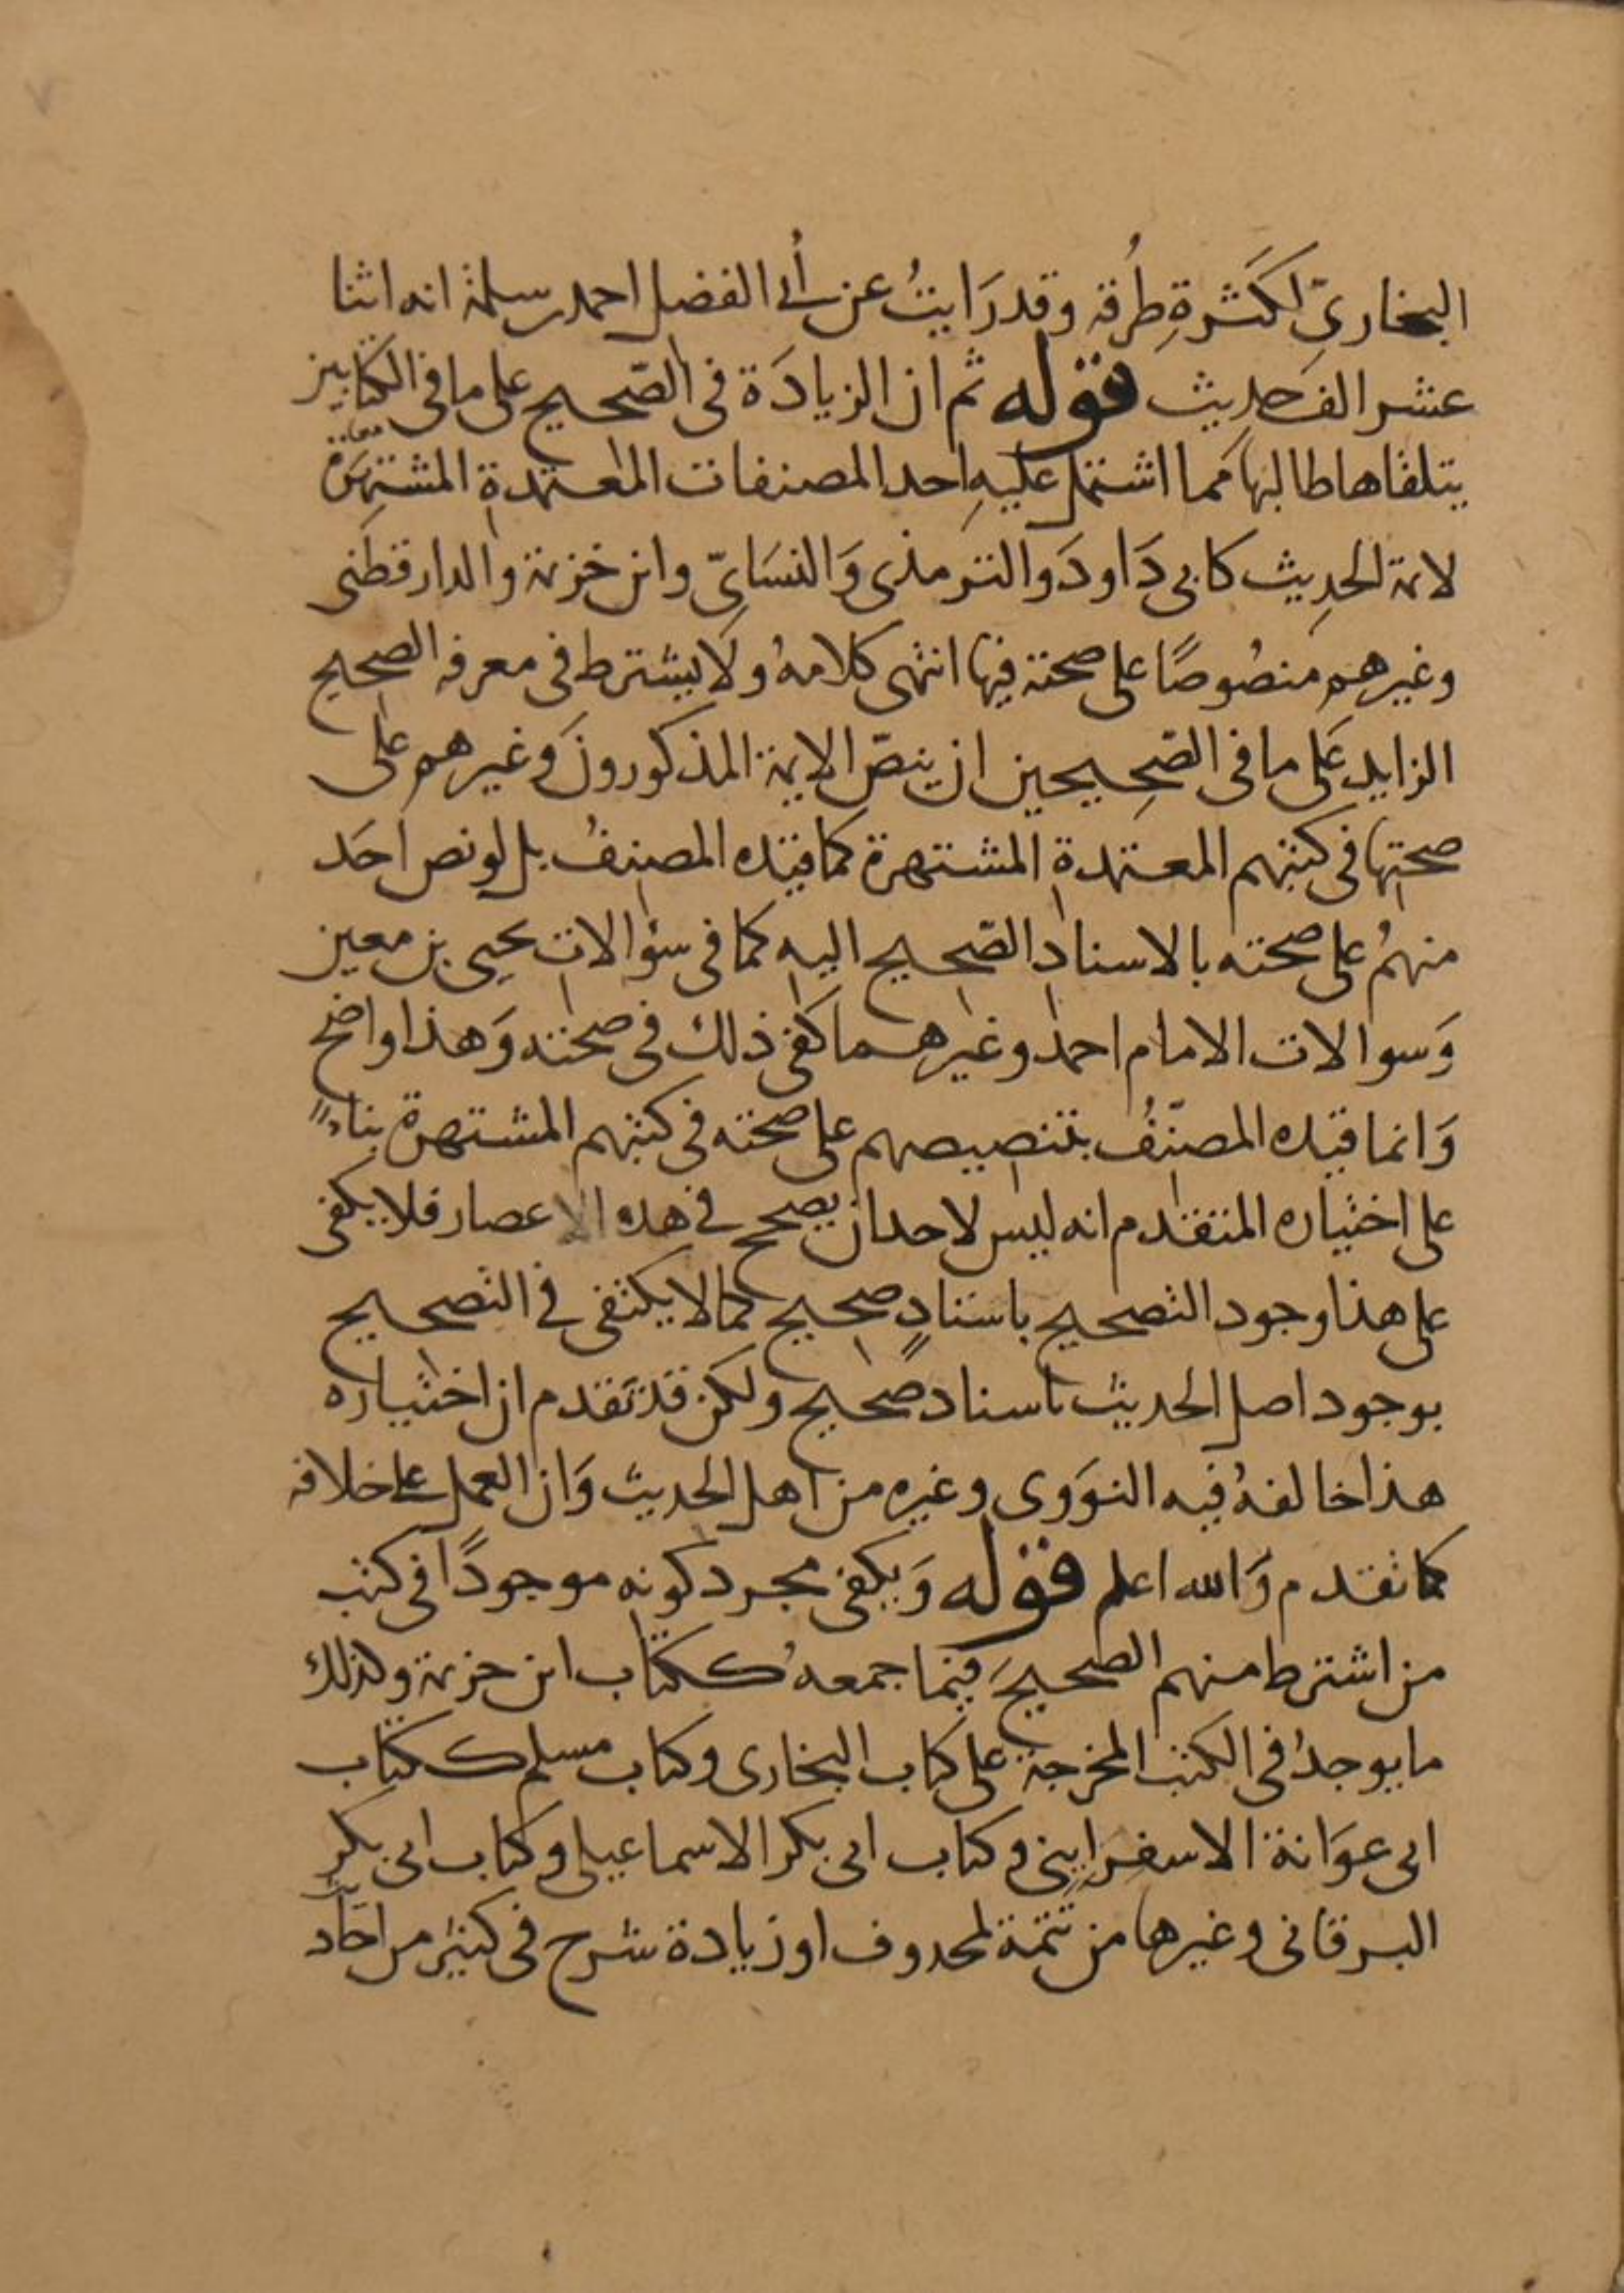 البخاريّ لكَثرةِ طُرقه وقدرَايتُ عن أبي الفضل احمد بن سلمة انه اثنا
عشر الف حديث قوله ثم ان الزيادَة في الصّحيح على ما في الكتابين
يتلقاها طالبها مما اشتمل عليهِ احد المصنفات المعتمدةِ المشتهرة
لائمة الحدِيث كابي دَاودَ والترمذي وَالنسَايّ وابن خزيمة والدارقطني
وغيرهم منصُوصًا على صحته فيها انتهى كلامهُ ولَا يشترط في معرفه الصحيح
الزايد عَلى ما في الصّحِيحين ان ينصّ الايمة المذكورونَ وغيرهم على
صحتها في كتبهم المعتمدةِ المشتهرة كما قيّده المصنفُ بل لو نص احَد
منهُم على صحته بالاسنادِ الصّحيح اليه كما في سؤالات يحيى بن معين
وَسوالات الامام احمد وغيرهما كفى ذلك في صحته وَهذا واضح
وَانما قيّده المصنّفُ بتنصيصهم على صحته في كتبهم المشتهرة بناءً
على اختياره المتقدم انه ليس لاحد ان يصحح في هذه الاعصار فلا يكفي
على هذا وجود التصحيح باسنادٍ صحيح كما لا يكتفى في التصحيح
بوجود اصل الحديث باسناد صحيح ولكن قد تَقدم ان اختياره
هذا خالفهُ فيه النوَوى وغيره من اهل الحديث وَان العمل على خلافه
كما تقدم وَالله اعلم قوله وَيكفي مجرد كونه موجودًا في كتب
من اشترط منهم الصحيحَ فيما جمعهُ ككتاب ابن خزيمة وكذلك
ما يوجدُ في الكتب المخرجة على كتاب البخارى وكتاب مسلم ككتاب
ابى عوَانة الاسفرايني وكتاب ابى بكر الاسماعيلي وكتاب ابى بكر
البرقاني وغيرها من تتمّة لمحذوف او زيادة شرح في كثير من احاد
يث